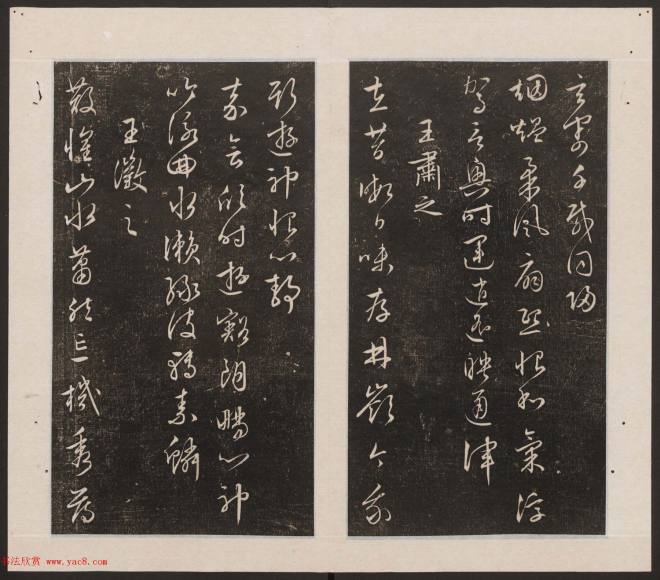 真寄千載同歸
烟熅柔風扇熙怡和氣淳
駕言興時遊逍遙映通津
王肅之
在昔暇日味存林嶺今我
斯遊神怡心靜
嘉會欣時遊豁朗暢心神
吟詠曲水瀨淥波轉素鱗
王徽之
散懷山水蕭然忘機秀薄
书法欣赏 www.yac8.com